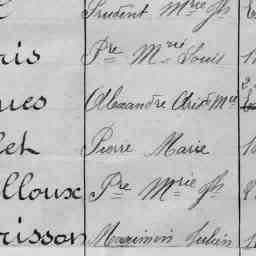 Prudent Mrie Jh
ris Pre Mrie Louis
ues Alexandre Arist. Mce
let Pierre Marie
lloux Pre Mrie Jh
risson Maximin Julien